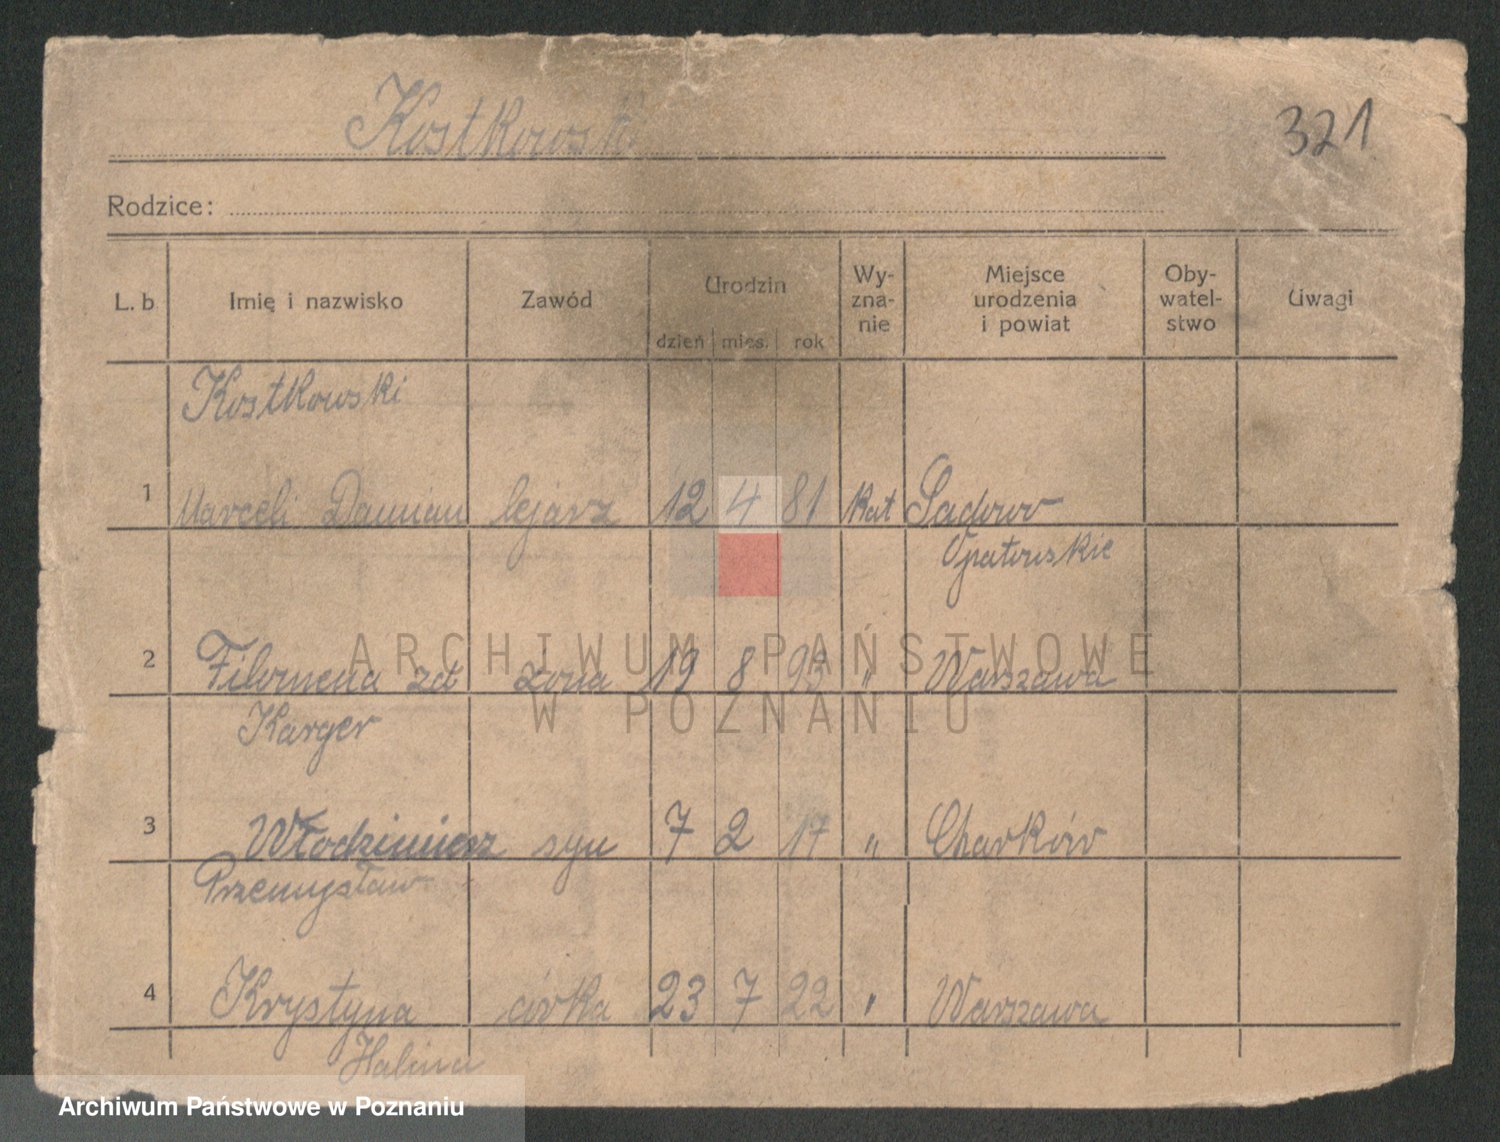 Kostkowski
321
Rodzice:
L. b Imię i nazwisko Zawód Urodzin Wy-zna-nie Miejsce urodzenia i powiat Oby-watel-stwo Uwagi
dzień mies. rok
Kostkowski
1 Marceli Damian lejarz 12 4 81 kat Sadowo
Opatowskie
2 Filomena zd żona 19 8 93 " Warszawa
Karger
3 Włodzimierz syn 7 2 17 " Charków
Przemysław
4 Krystyna córka 23 7 22 " Warszawa
Halina
ARCHIWUM PAŃSTWOWE
W POZNANIU
Archiwum Państwowe w Poznaniu